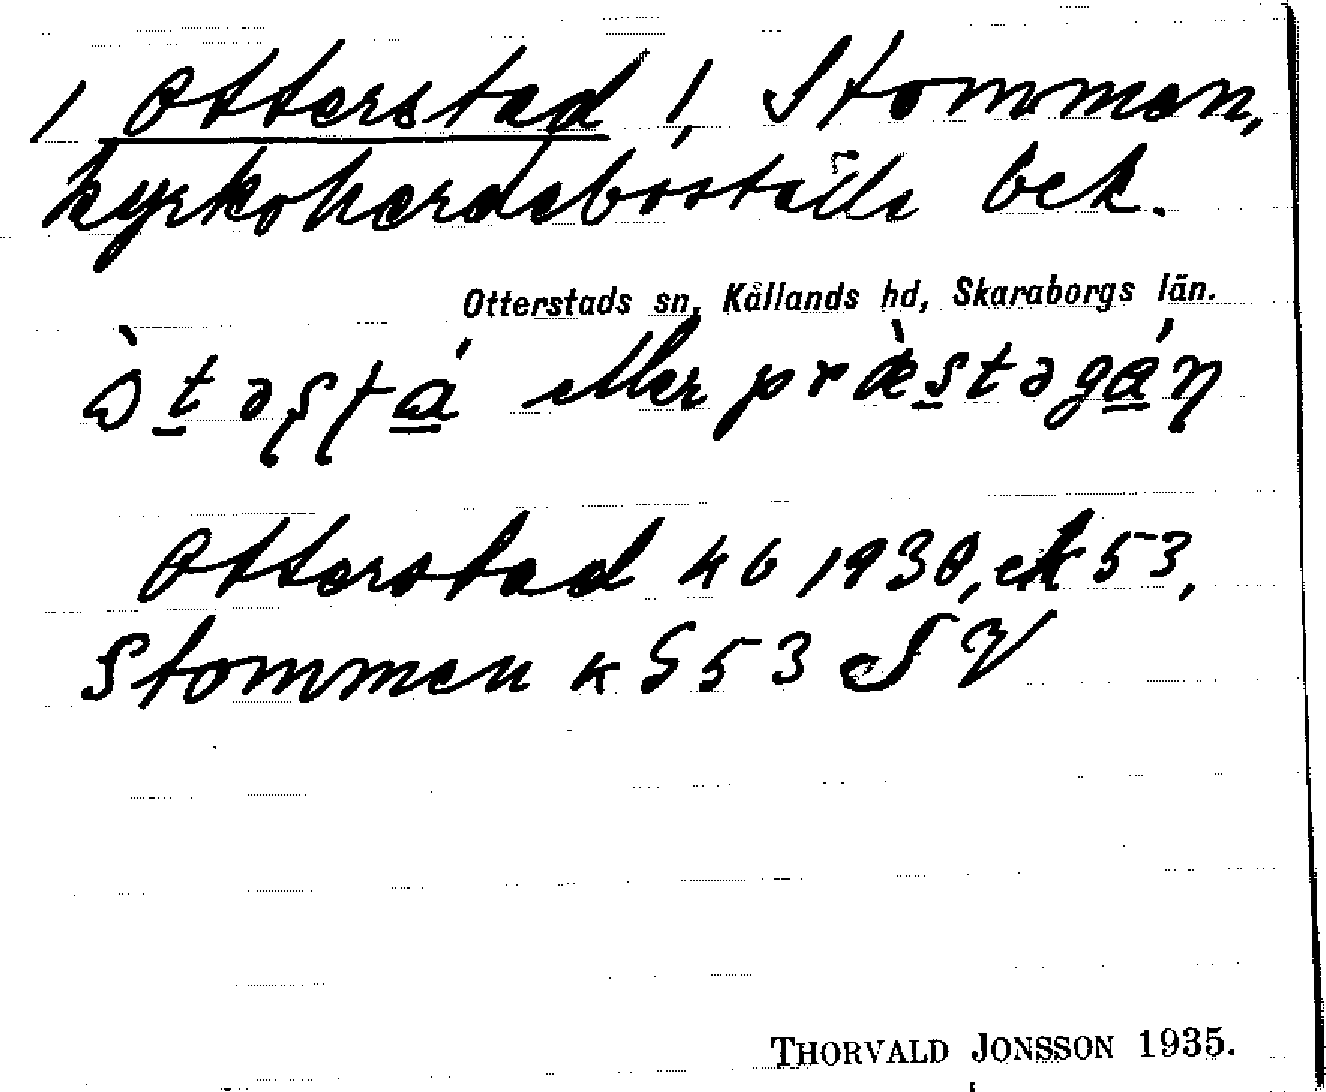 / Otterstad /, Stommen,
kyrkoherdeboställe bek.
Otterstads sn, Kållands hd, Skaraborgs län.
eller
Otterstad 46 1930, ek 53,
Stommen 53
THORVALD JONSSON 1935.